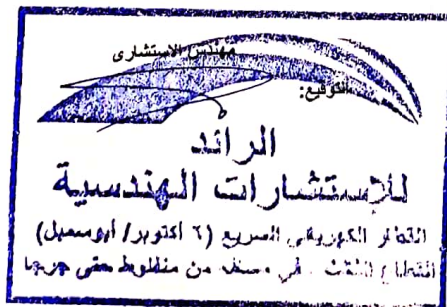 مهندس الاستشارى
التوقيع:
الرائد
للإستشارات الهندسية
القطار الكهربائي السريع (٦ أكتوبر/ أبوسمبل)
القطاع الثالث . في من منفلوط حتى جرجا